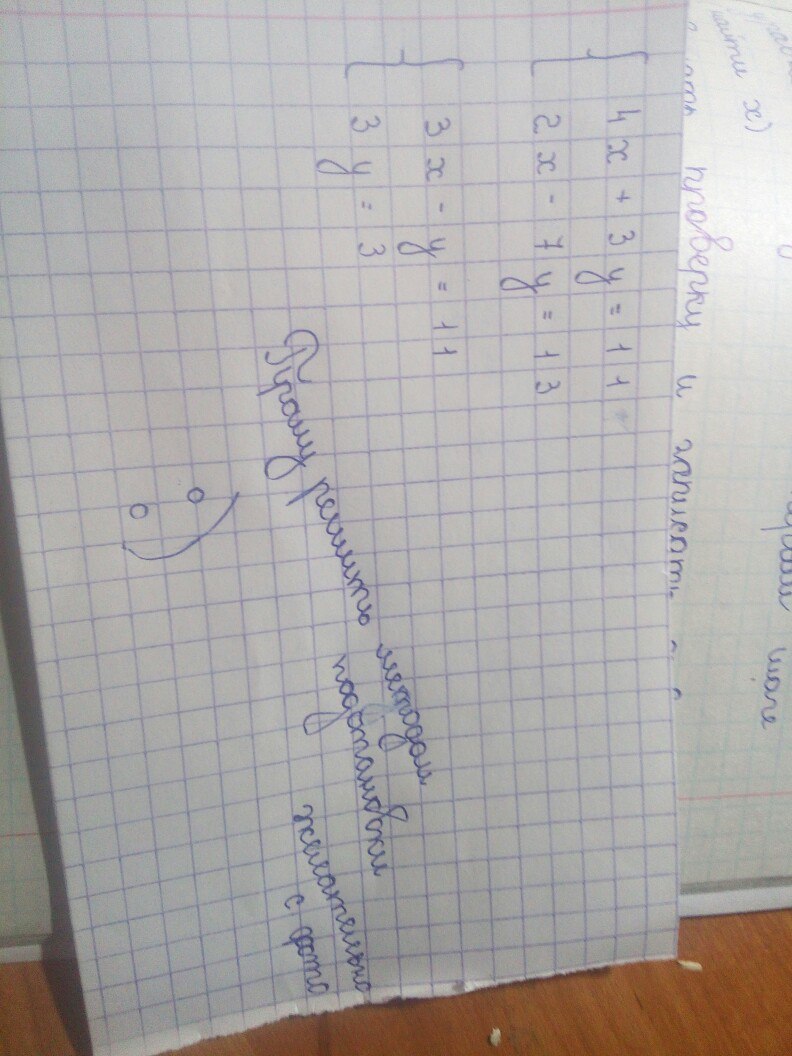 4x + 3y = 11
2x - 7y = 13
3x - y = 11
3y = 3
Прошу решить методом
подстановки
желательно
с фото
найти x)
проверку и записать
шаге